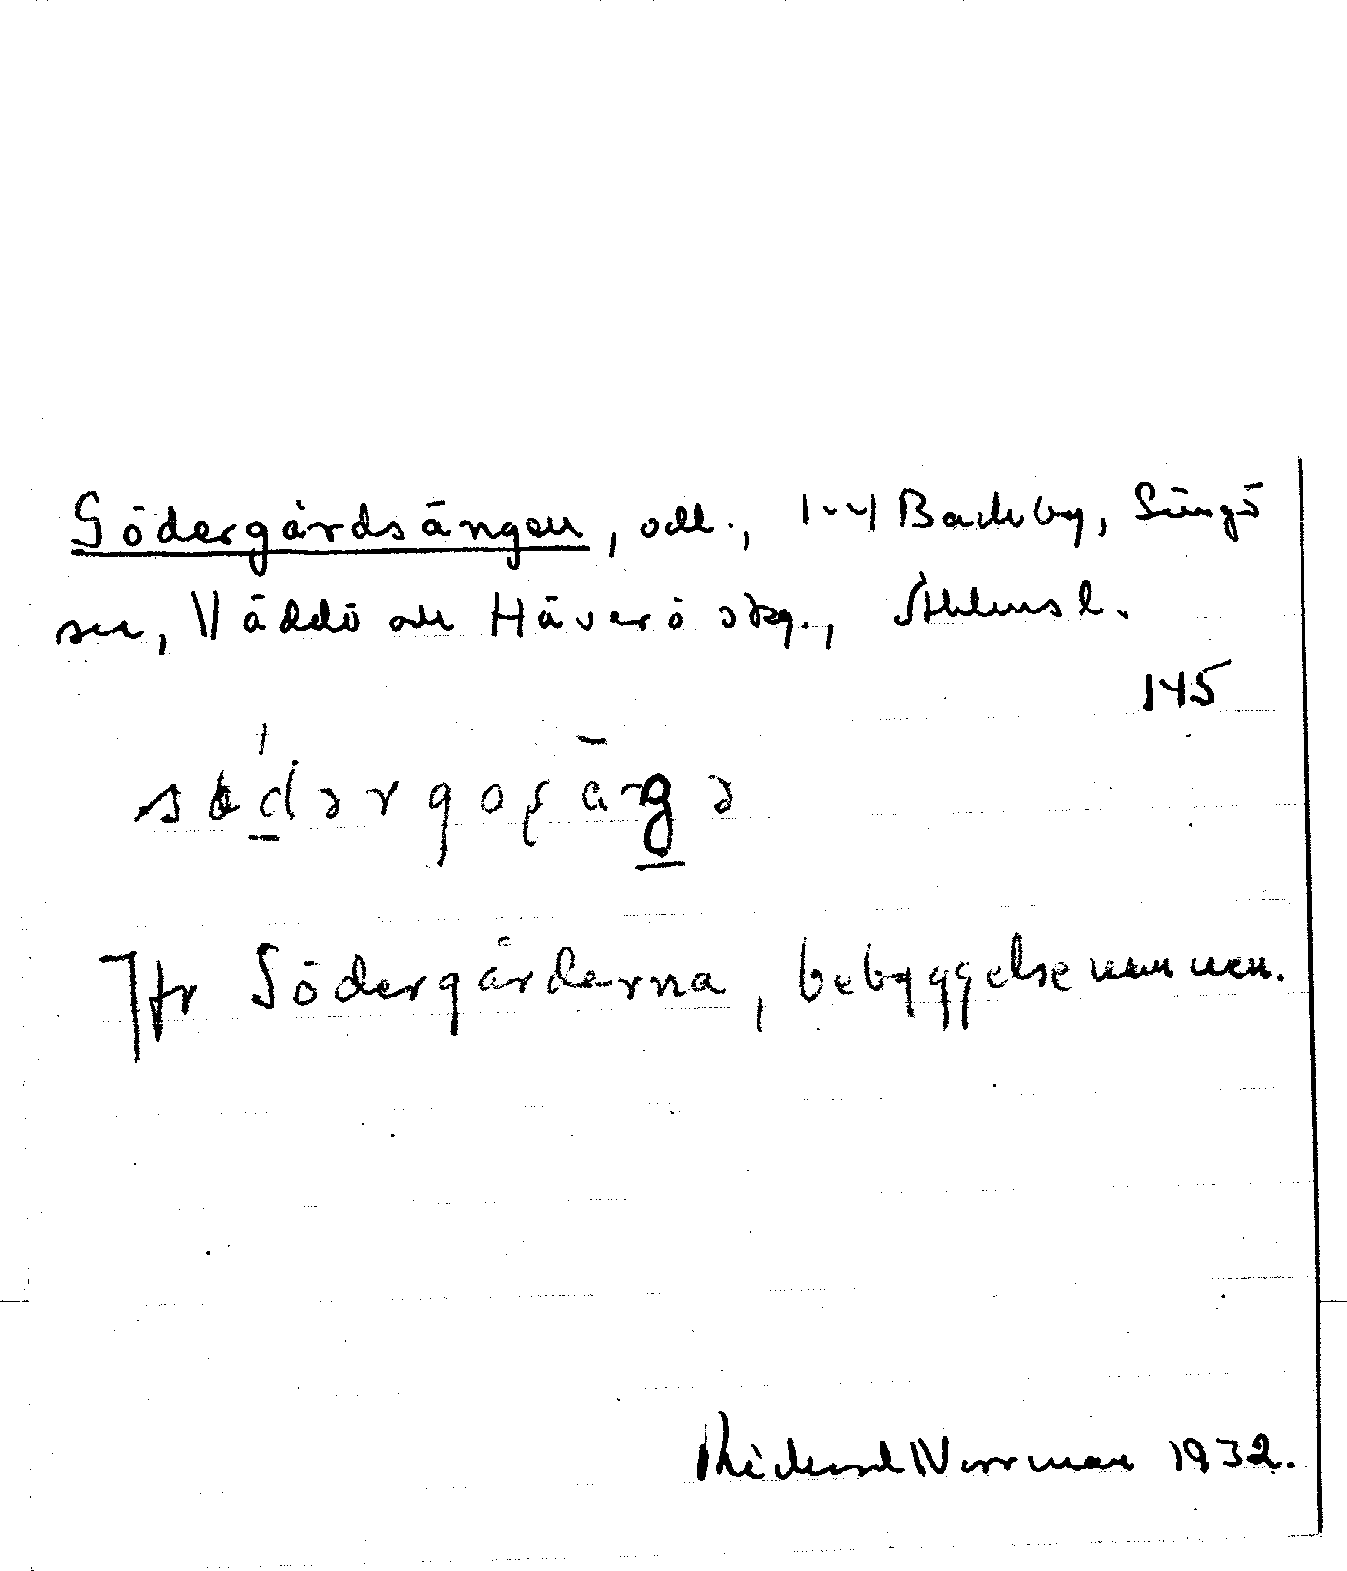 Södergårdsängen, odl., 1-4 Backby, Singö
sn, Väddö och Häverö skg., Sthlms l.
145
sødərgoʂäŋə
Jfr Södergårderna, bebyggelsenamnen.
Rickard Norrman 1932.